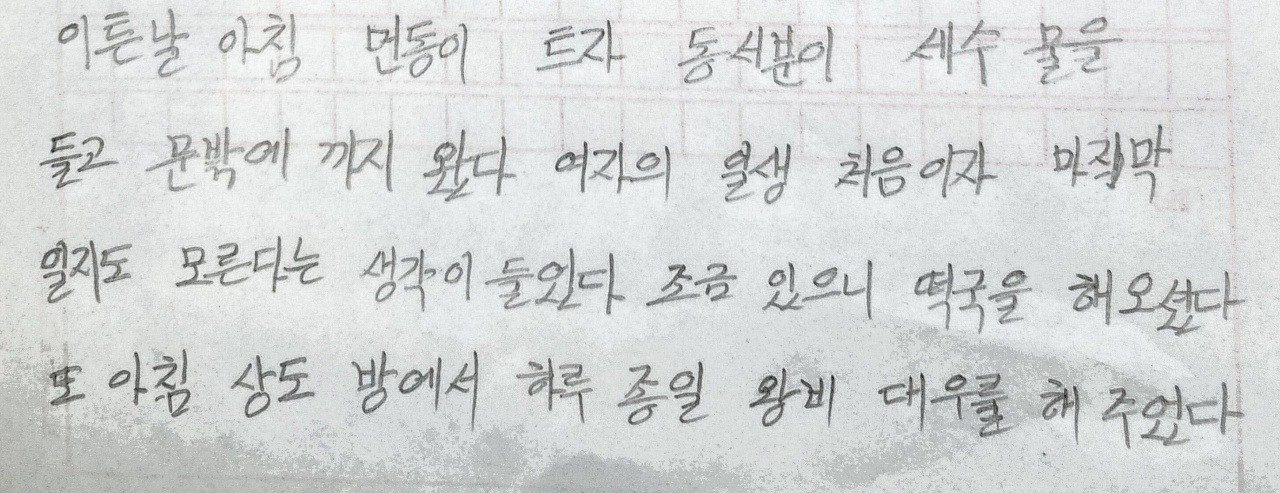 이튼날 아침 먼동이 트자 동서분이 세수 물을
들고 문밖에 까지 왔다 여자의 일생 처음이자 마직막
일지도 모른다는 생각이 들었다 조금 있으니 떡국을 해오셨다
또 아침 상도 방에서 하루 종일 왕비 대우를 해 주었다